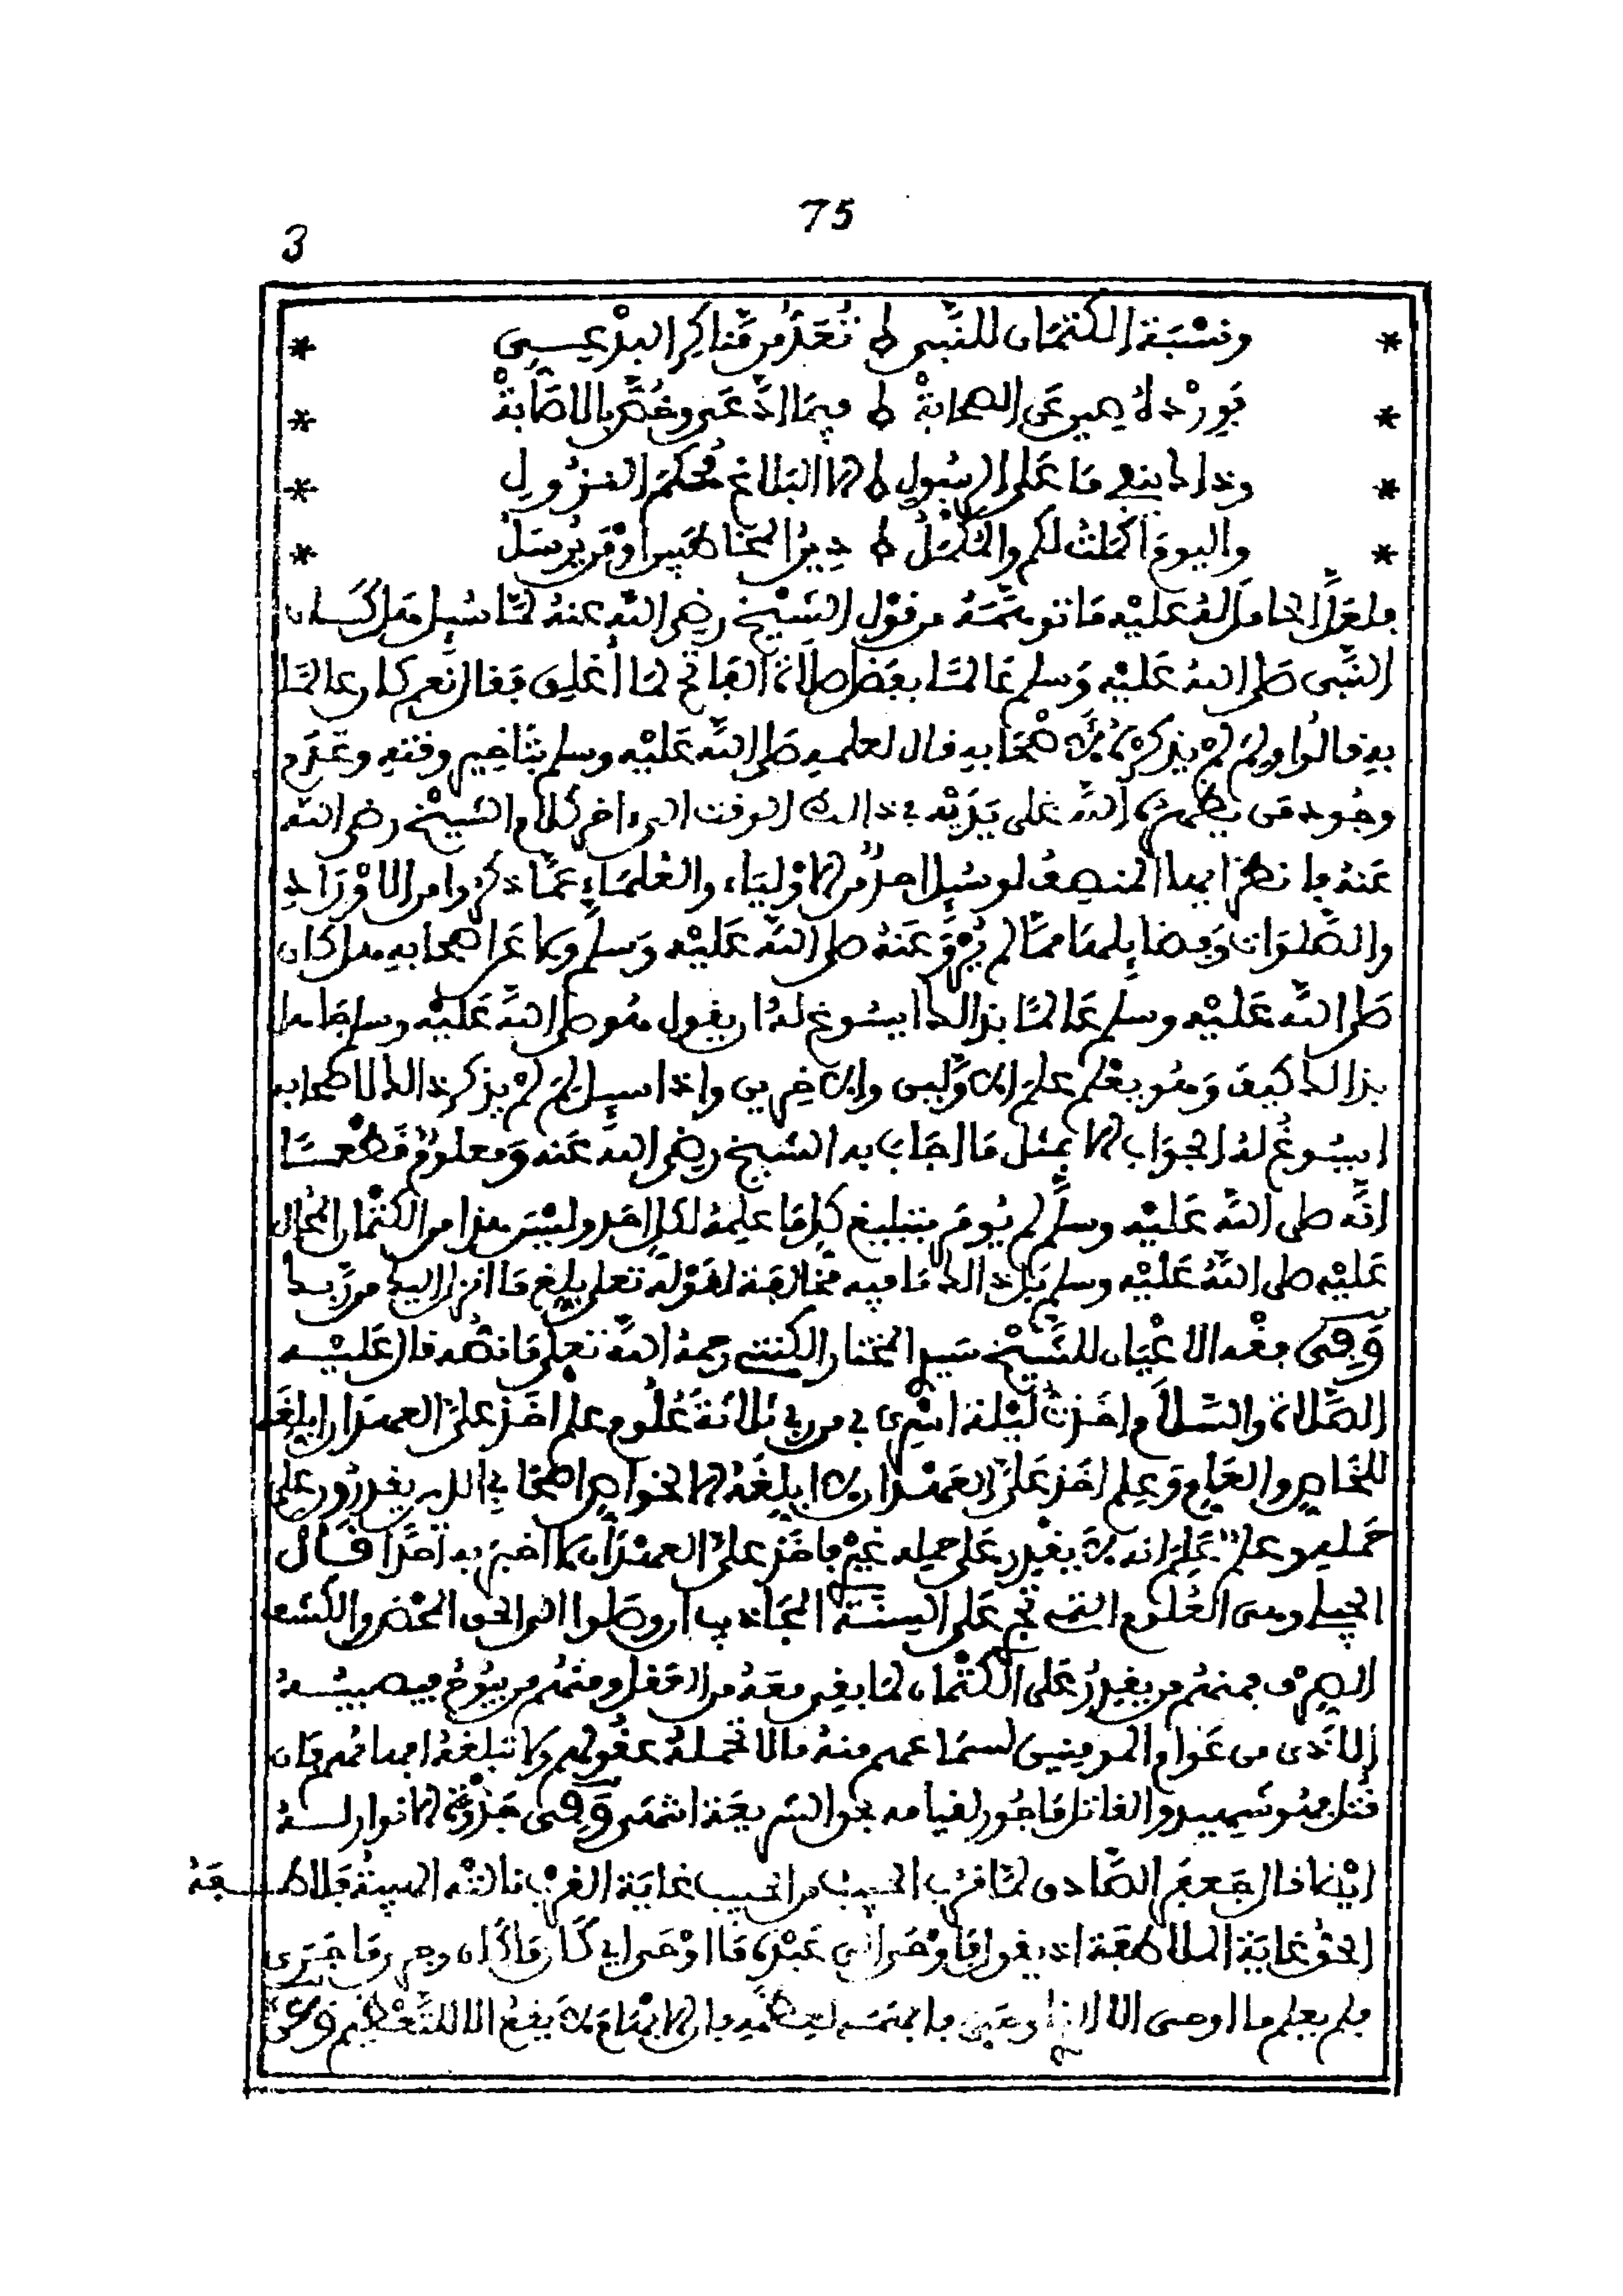 75
3
* ونسبة الكتمان للنبي ه تعد من مناكر البدعي *
* بورد لا صير عن الصحابة ه فيما ادعى وخص بالاصابة *
* وذا ينفى ما على الرسول ه الا البلاغ محكم النزول *
* واليوم اكملت لكم والمكمل ه دين المخاطبين او من يرسل *
فلعل الحامل له عليه ما توهمه من قول الشيخ رضى الله عنه لما سيل هل كان
النبى صلى الله عليه وسلم عالما بفضل صلاة الفاتح لما أغلق فقال نعم كان عالما
به قالوا ولم لم يذكره لأصحابه قال لعلمه صلى الله عليه وسلم بتاخير وقته وعدم
وجود من يظهره الله على يديه في ذالك الوقت الى ءاخر كلام الشيخ رضى الله
عنه فانظر ايها المنصف لو سيل احد من الاولياء والعلماء عما ذكروا من الاوراد
والصلوات وفضايلها مما لم يرو عنه صلى الله عليه وسلم ولا عن اصحابه هل كان
صلى الله عليه وسلم عالما بذالك ايسوغ له ان يقول هو صلى الله عليه وسلم جاهل
بذالك كيف وهو يعلم علم الاولين والاخرين واذا سيل لم لم يذكر ذالك لاصحابه
ايسوغ له الجواب الا بمثل ما اجاب به الشيخ رضى الله عنه ومعلوم قطعا
انه صلى الله عليه وسلم لم يومر بتبليغ كل ما علمه لكل احد وليس هذا من الكتمان المحال
عليه صلى الله عليه وسلم بل ذالك ما فيه مخالفة لقوله تعلى بلغ ما انزل اليك من ربك
وفى فقه الاعيان للشيخ سيد المختار الكنتي رحمه الله تعلى ما نصه قال عليه
الصلاة والسلام اخذت ليلة اسري بي من ربي ثلاثة علوم علم اخذ علي العهد ان ابلغه
للخاص والعام وعلم اخذ علي العهد ان لا ابلغه الا لخواص اصحابي الذين يقدرون على
حمله وعلم علم انه لا يقدر على حمله غيري فاخذ علي العهد ان لا اخبر به احدا قال
الجيلي وهى العلوم التي تجري على السنة المجاذيب ان وصلوا الى الحق المحض والكشف
الصرف فمنهم من يقدر على الكتمان لما بقي معه من العقل ومنهم من يبوح فيصيبه
الاذى من عوام المومنين لسماعهم منه مالا تحمله عقولهم ولا تبلغه افهامهم فان
قتل فهو شهيد والقاتل ماجور لقيامه بحق الشريعة انتهى وفى جذوة الانوار له
ايضا قال جعفر الصادق لما قرب الحبيب من الحبيب غاية القرب نالته الهيبة فلاطفه
الحق غاية الملاطفة اذ يقول فاوحى الى عبده ما اوحى اي كان ما كان وجرى ما جرى
فلم يعلم ما اوحى الا الذي اوحى فابهمه لعظمه فان الابهام لا يقع الا للتعظيم وعن